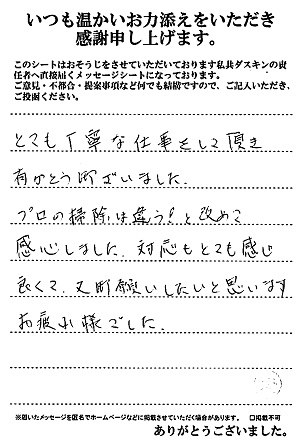 いつも温かいお力添えをいただき
感謝申し上げます。
このシートはおそうじをさせていただいております私共ダスキンの責
任者へ直接届くメッセージシートになっております。
ご意見・不都合・提案事項など何でも結構ですので、ご記入いただき、
ご投函ください。
とても丁寧な仕事をして頂き
有がとう御ざいました。
プロの掃除は違う!と改めて
感心しました。対応もとても感じ
良くて、又御願いしたいと思います
お疲れ様でした。
※頂いたメッセージを匿名でホームページなどに掲載させていただく場合があります。 □掲載不可
ありがとうございました。